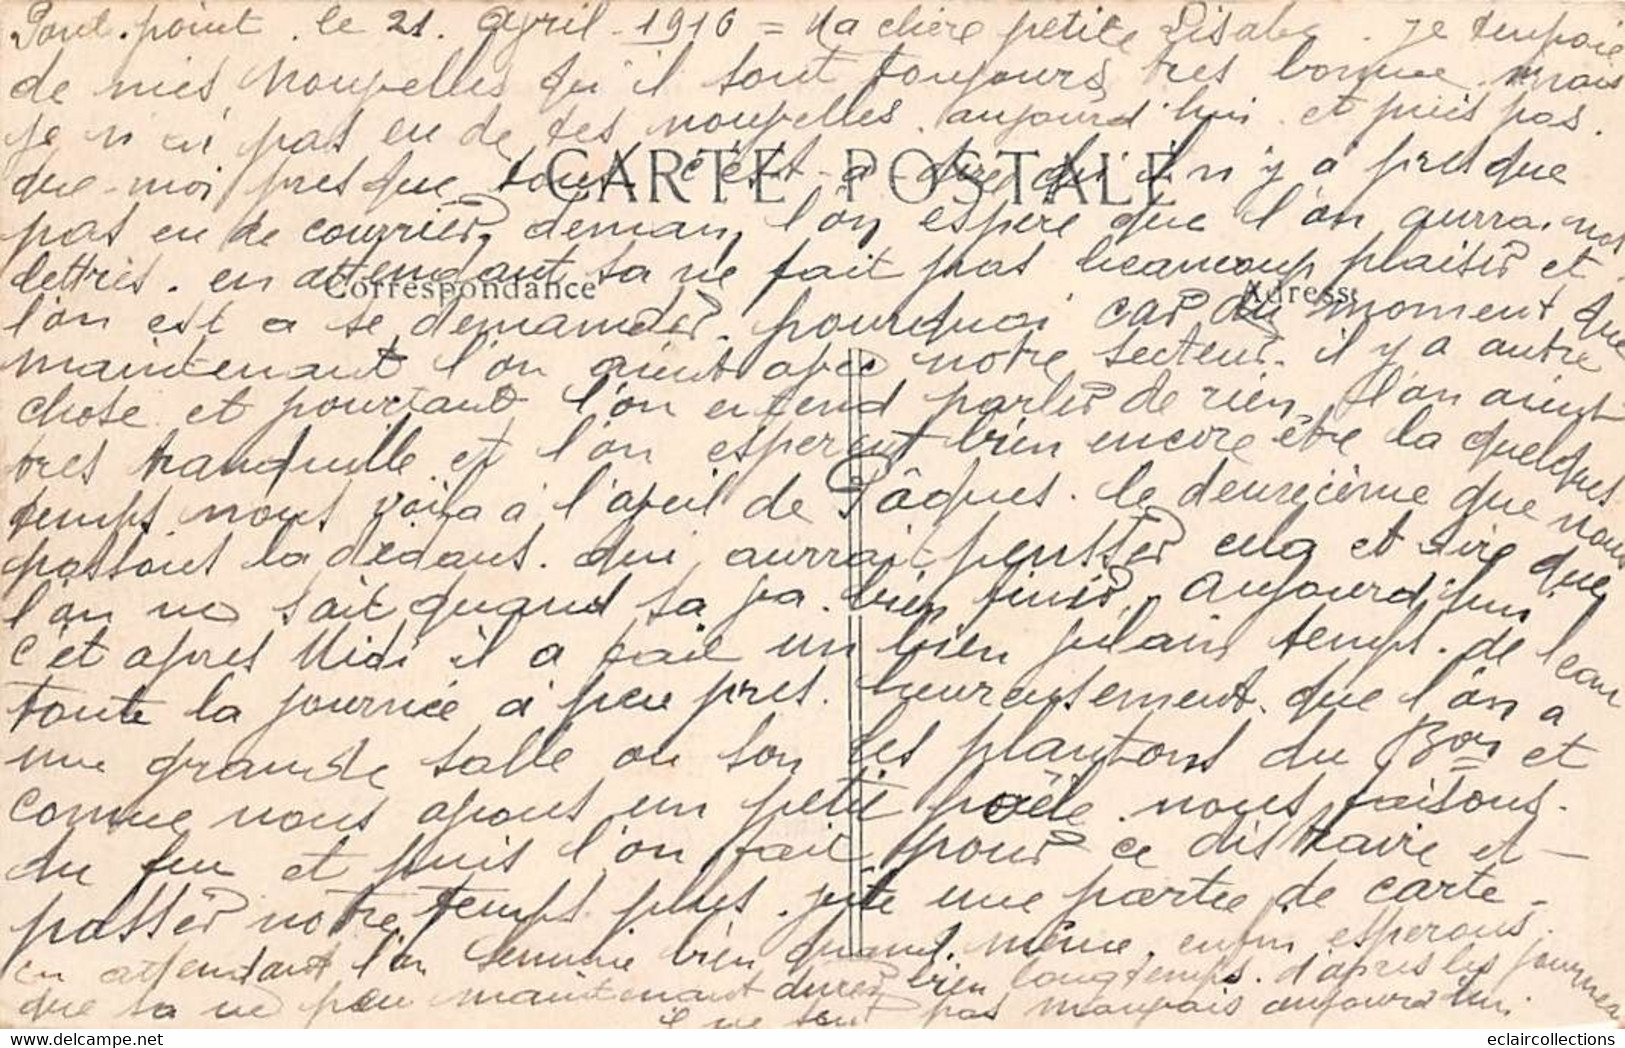 Pont-point. le 21. Avril - 1916 = Ma chère petite Lisabe. je tenpoie
de mes nouvelles qu'il sont toujours très bonne. mais
je n'ai pas eu de tes nouvelles. aujourd'hui et puis pas.
que moi presque tous. c'est-a-dire qu'il n'y a presque
CARTE POSTALE
pas eu de courrier, deman, l'on espere que l'on aurra. nos
lettres. en attendant sa ne fait pas beaucoup plaisir et
Correspondance Adresse
l'on est a se demander. pourquoi car du moment que
maintenant l'on aient avec notre secteur. il y a autre
chose et pourtant l'on entend parler de rien. l'on aient
tres tranquille et l'on esperent bien encore être la quelques
temps nous voila a l'aveil de Pâques. le deuxcième que nous
passons la dedans. qui aurrait pensser cela et dire que
l'on ne sait quand sa va bien finir. Aujourd'hui
c'et apres Midi il a fait un bien vilain temps. de l'eau
toute la journée à peu pres. heureusement que l'on a
une grande salle ou son les plantons du Bon et
comme nous avons un petit poêle. nous faisons.
du feu et puis l'on fait pour ce distraire et
passer notre temps plus vite une partie de carte.
en attendant l'on s'ennuie bien quand même, enfin esperons.
que sa ne peu maintenant durer bien longtemps. d'apres les journeaux
il ne sont pas mauvais aujourd'hui.
eclaircollections